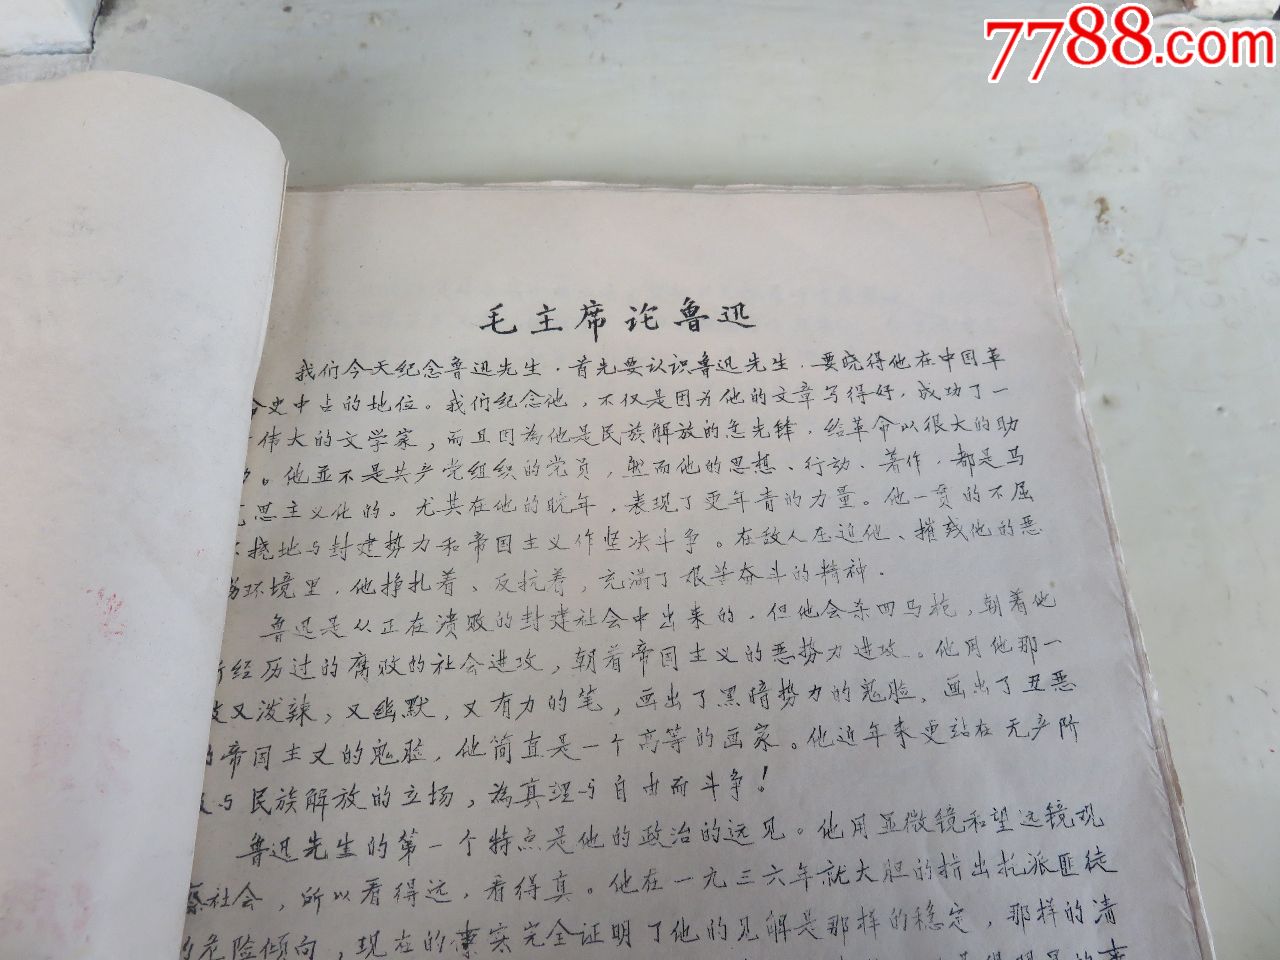 7788.com
毛主席论鲁迅
我们今天纪念鲁迅先生．首先要认识鲁迅先生．要晓得他在中国革
命史中占的地位。我们纪念他，不仅是因为他的文章写得好，成功了一
伟大的文学家，而且因為他是民族解放的急先锋，给革命以很大的助
力。他並不是共产党组织的党员，然而他的思想、行动、著作．都是马
思主义化的。尤其在他的晚年，表现了更年青的力量。他一贯的不屈
挠地与封建势力和帝国主义作坚决斗争。在敌人压迫他、摧残他的恶
环境里，他挣扎着、反抗着，充满了艰苦奋斗的精神．
鲁迅是从正在溃败的封建社会中出来的，但他会杀回马枪，朝着他
所经历过的腐败的社会进攻，朝着帝国主义的恶势力进攻。他用他那一
又泼辣，又幽默，又有力的笔，画出了黑暗势力的鬼脸，画出了丑恶
的帝国主义的鬼脸，他简直是一个高等的画家。他近年来更站在无产阶
与民族解放的立场，為真理与自由而斗争！
鲁迅先生的第一个特点是他的政治的远见。他用显微镜和望远镜观
察社会，所以看得远，看得真。他在一九三六年就大胆的指出托派匪徒
的危险倾向，现在的事实完全证明了他的见解是那样的稳定，那样的清